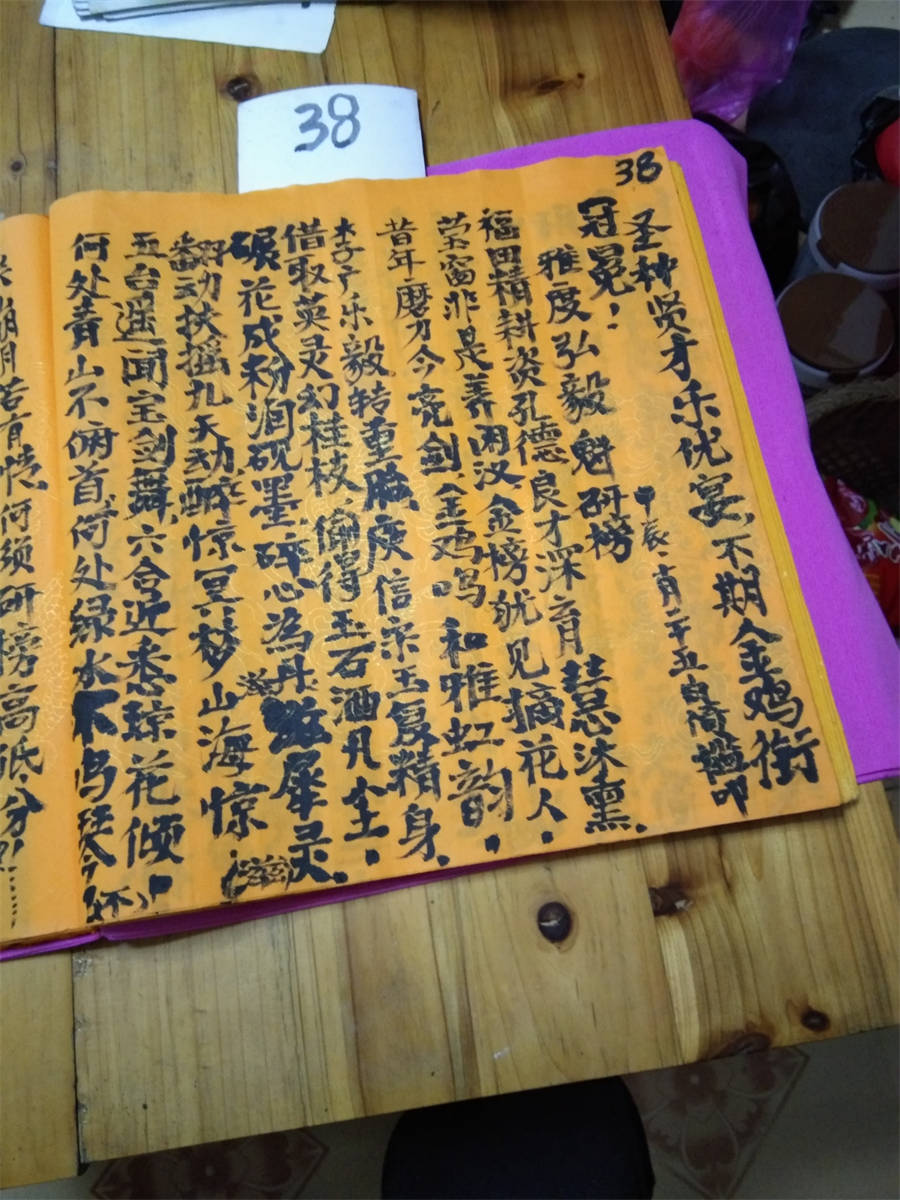 38
38
圣种贤才乐优宴,不期金鸡衔
冠冕!
甲辰
雅度弘毅魁研榜
慧思沐熏.
福田精耕资孔德良才深育
莹窗非是养困汉金榜犹见摘花人.
昔年磨刀今亮剑金鸡鸣和雅虹韵.
李广乐毅转重臨庾信宋玉复精身.
借取英灵幻桂枝偷得玉石酒凡尘.
碾花成粉润砚墨碎心为丹滋犀灵.
翻动扶摇九天动醉惊冥梦山海惊.
五台遥闻宝剑舞六合近悉琼花倾.
何处青山不俯首何处绿水不鸣琴今
何须研榜高低分!!……